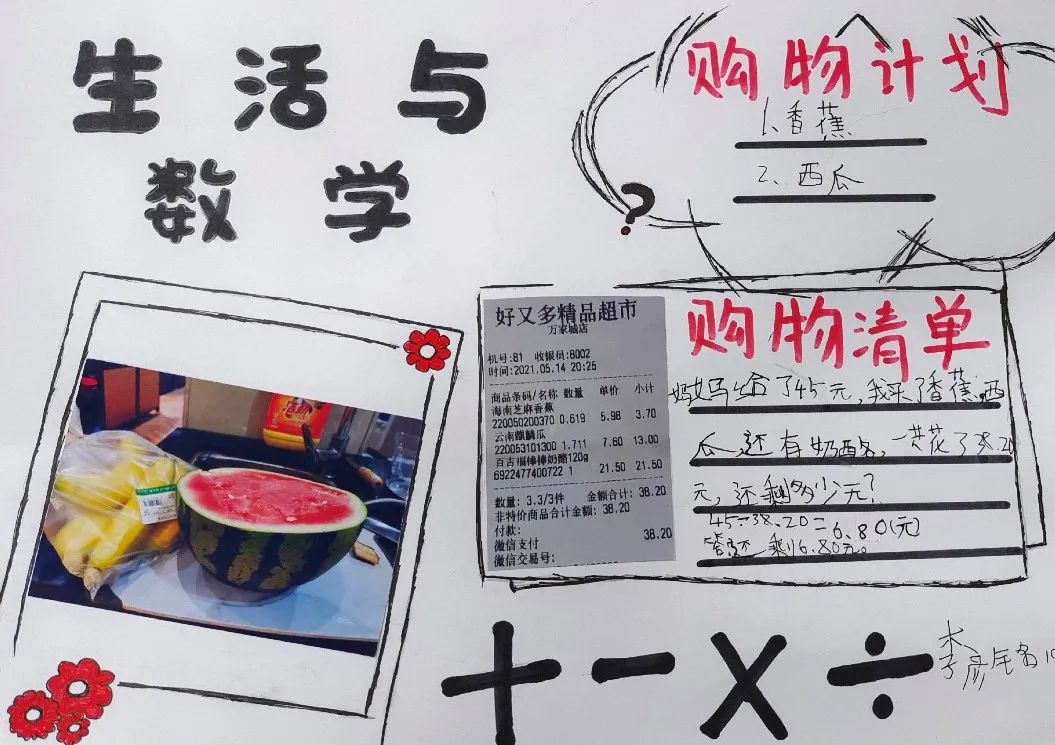 生活与
数学
购物计划
1、香蕉
2、西瓜
?
好又多精品超市
万家城店
机号:81 收银员:8002
时间:2021.05.14 20:25
商品条码/名称 数量 单价 小计
海南芝麻香蕉
220050200370 0.619 5.98 3.70
云南麒麟瓜
220053101300 1.711 7.60 13.00
百吉福棒棒奶酪120g
6922477400722 1 21.50 21.50
数量: 3.3/3件 金额合计: 38.20
非特价商品合计金额: 38.20
付款:
微信支付 38.20
微信交易号:
购物清单
妈妈给了45元,我买了香蕉,西
瓜,还有奶酪,一共花了38.20
元,还剩多少元?
45-38.20=6.80(元)
答:还剩6.80元。
+ - × ÷
李彦